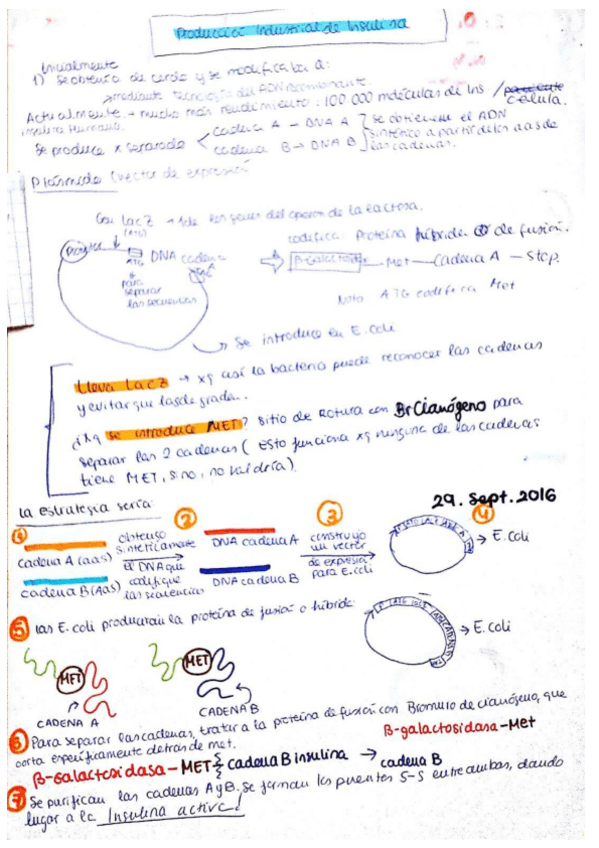 Producción Industrial de Insulina
Inicialmente
1) Se obtenía de cerdo y se modificaba a:
mediante Tecnología del ADN recombinante.
Actualmente → mucho más rendimiento: 100 000 moléculas de Ins / célula.
insulina Humana.
Se produce x separado
cadena A → DNA A
cadena B → DNA B
se obtienen el ADN
sintético a partir de los aas de
las cadenas.
Plásmido (vector de expresión
Gen Lac Z → 1 de los genes del operon de la lactosa.
Promotor
ATG
DNA cadena
para
separar
las secuencias
codifica: Proteína híbrida o de fusión.
β-galactos — Met — Cadena A — Stop.
Nota ATG codifica Met
Se introduce en E. coli
Lleva Lac Z → xq así la bacteria puede reconocer las cadenas
y evitar que las degrade.
¿Xq se introduce MET? Sitio de Rotura con Br Cianógeno para
separar las 2 cadenas (Esto funciona xq ninguna de las cadenas
tiene MET, sino, no valdría).
29. Sept. 2016
La estrategia sería:
1 2 3 4
cadena A (aas)
cadena B (Aas)
obtengo
sintéticamente
el DNA que
codifique
las secuencias
DNA cadena A
DNA cadena B
construyo
un vector
de expresión
para E. coli
→ E. Coli
5 Las E. coli producirán la proteína de fusión o híbrida:
→ E. coli
MET
MET
CADENA A
CADENA B
6 Para separar las cadenas, tratar a la proteína de fusión con Bromuro de cianógeno, que
corta específicamente detrás de met.
β-galactosidasa-Met
β-Galactosidasa-MET cadena B insulina → cadena B
7 Se purifican las cadenas A y B. Se forman los puentes S-S entre ambas, dando
lugar a la Insulina activa!